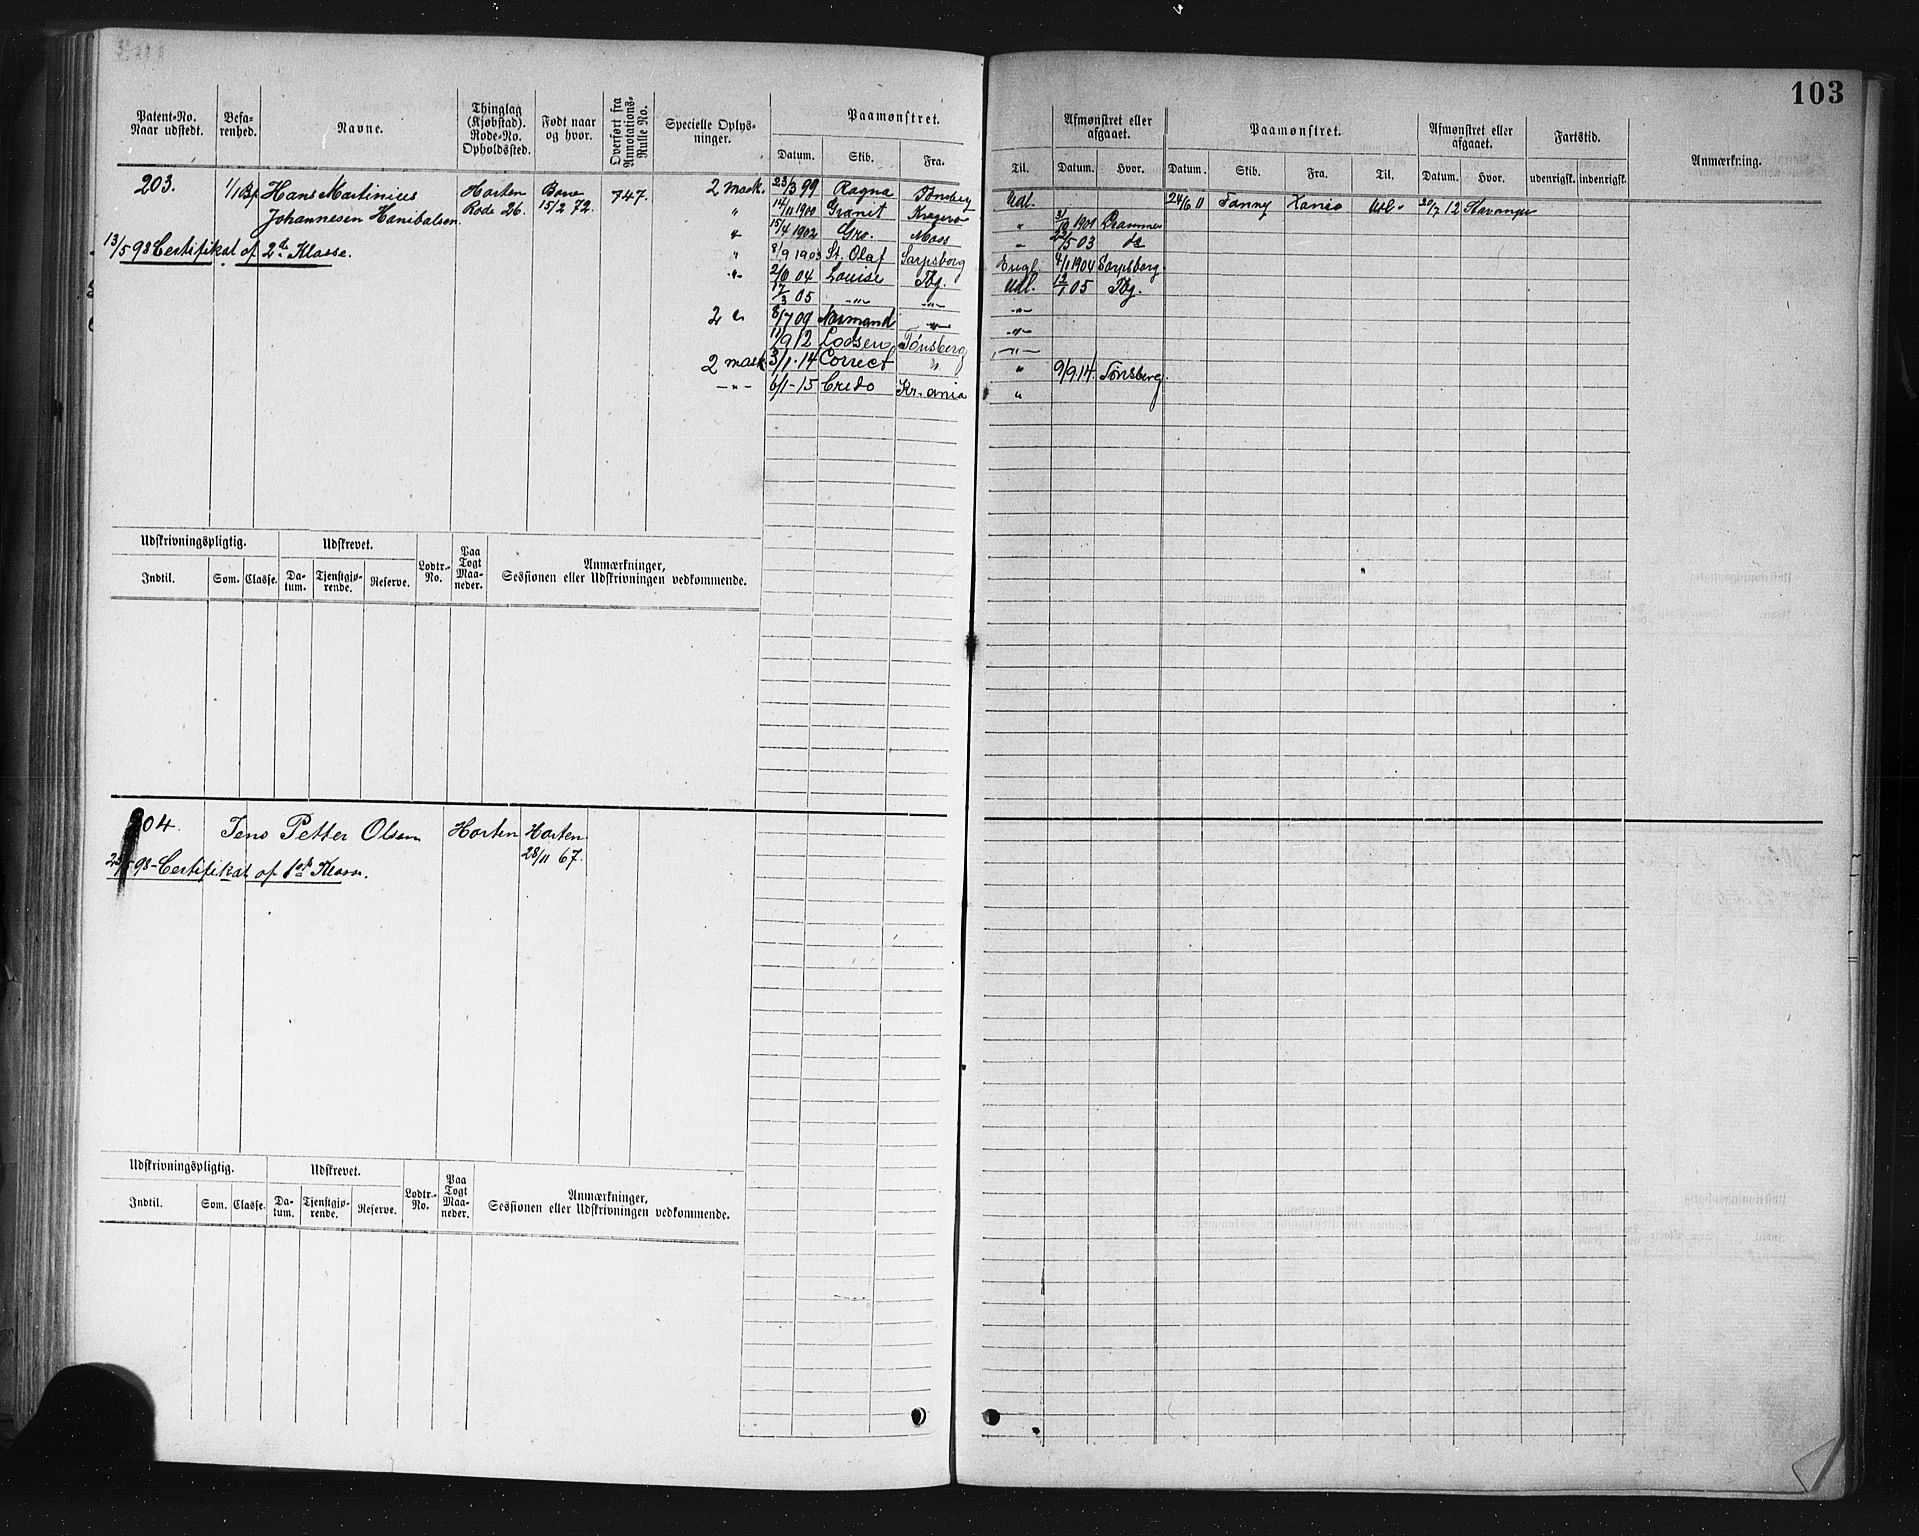 103
Patent-No. Naar udstedt. Befa- renhed. Navne. Thinglag (Kjøbstad). Rode-No. Opholdssted. Født naar og hvor. Overført fra Annotations- Rulle No. Specielle Oplys- ninger. Paamønstret. Datum. Skib. Fra.
Til. Afmønstret eller afgaaet. Datum. Hvor. Paamønstret. Datum. Skib. Fra. Til. Afmønstret eller afgaaet. Datum. Hvor. Fartstid. udenrigsk. indenrigsk. Anmærkning.
203. 1/1 Hans Martinius Horten 747. 2 mask. 23/3 99 Ragna Tønsberg Udl. 24/6 11 Fanny Xania Udl. 20/7 12 Stavanger
Johannesen Hanibalsen. Rode 26. 15/2 72. " 14/11 1900 Granit Kragerø " 1901 Drammen
13/5 98 Certifikat af 2den Klasse. " 15/4 1902 Gro. Moss " 22/5 03 do
" 8/9 1903 St. Olaf Sarpsborg Engl. 4/1 1904 Sarpsborg.
" 2/6 04 Louise Tbg. Udl. 12/1 05 Tbg.
17/3 05 -"- -"- -"-
2 " 8/7 09 Normand -"- -"-
11/9 12 Lodsen Tønsberg -"-
2 mask 3/1-14 Correct " " 9/9 14. Tønsberg.
-"- 6/1-15 Credo Kr.ania "
Udskrivningspligtig. Udskrevet. Lodtr.- No. Paa Togt Maa- neder. Anmærkninger, Sessionen eller Udskrivningen vedkommende.
Indtil. Som. Classe. Da- tum. Tjenstgjø- rende. Reserve.
204. Jens Petter Olsen Horten Horten
28/11 67.
98- Certifikat af 1ste Klasse.
Udskrivningspligtig. Udskrevet. Lodtr.- No. Paa Togt Maa- neder. Anmærkninger, Sessionen eller Udskrivningen vedkommende.
Indtil. Som. Classe. Da- tum. Tjenstgjø- rende. Reserve.